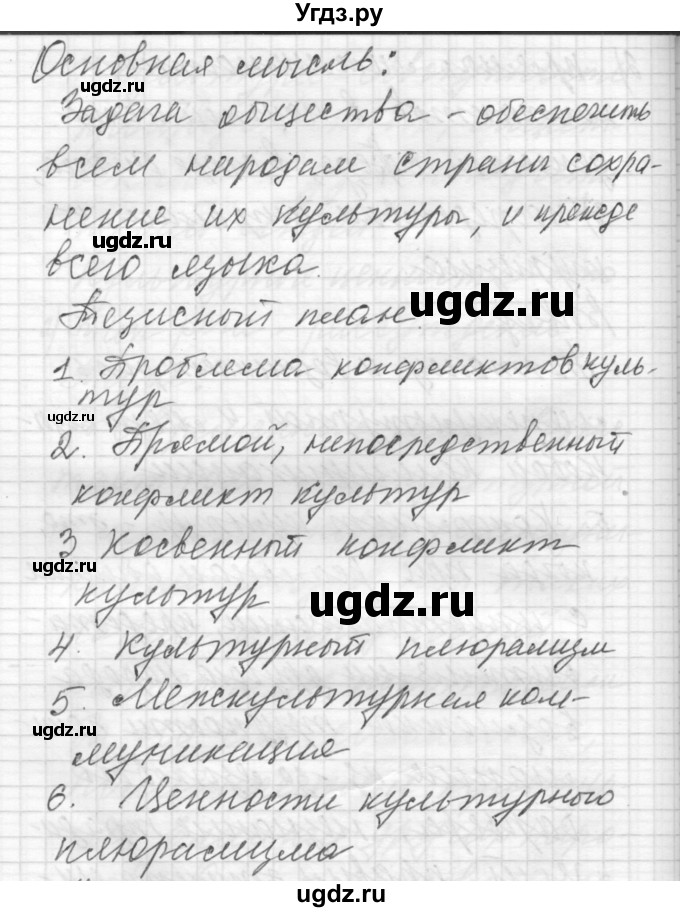 Угдз.ру
Основная мысль:
ugdz.ru
Задача общества - обеспечить
всем народам страны сохра-
нение их культуры, и прежде
ugdz.ru
всего языка.
ugdz.ru
Тезисный план.
1. Проблема конфликтов куль-
тур
ugdz.ru
2. Прямой, непосредственный
конфликт культур
3 Косвенный конфликт
ugdz.ru
культур
ugdz.ru
4. Культурный плюрализм
5. Межкультурная ком-
ugdz.ru
муникация
6. Ценности культурного
плюрализма
ugdz.ru
ugdz.ru